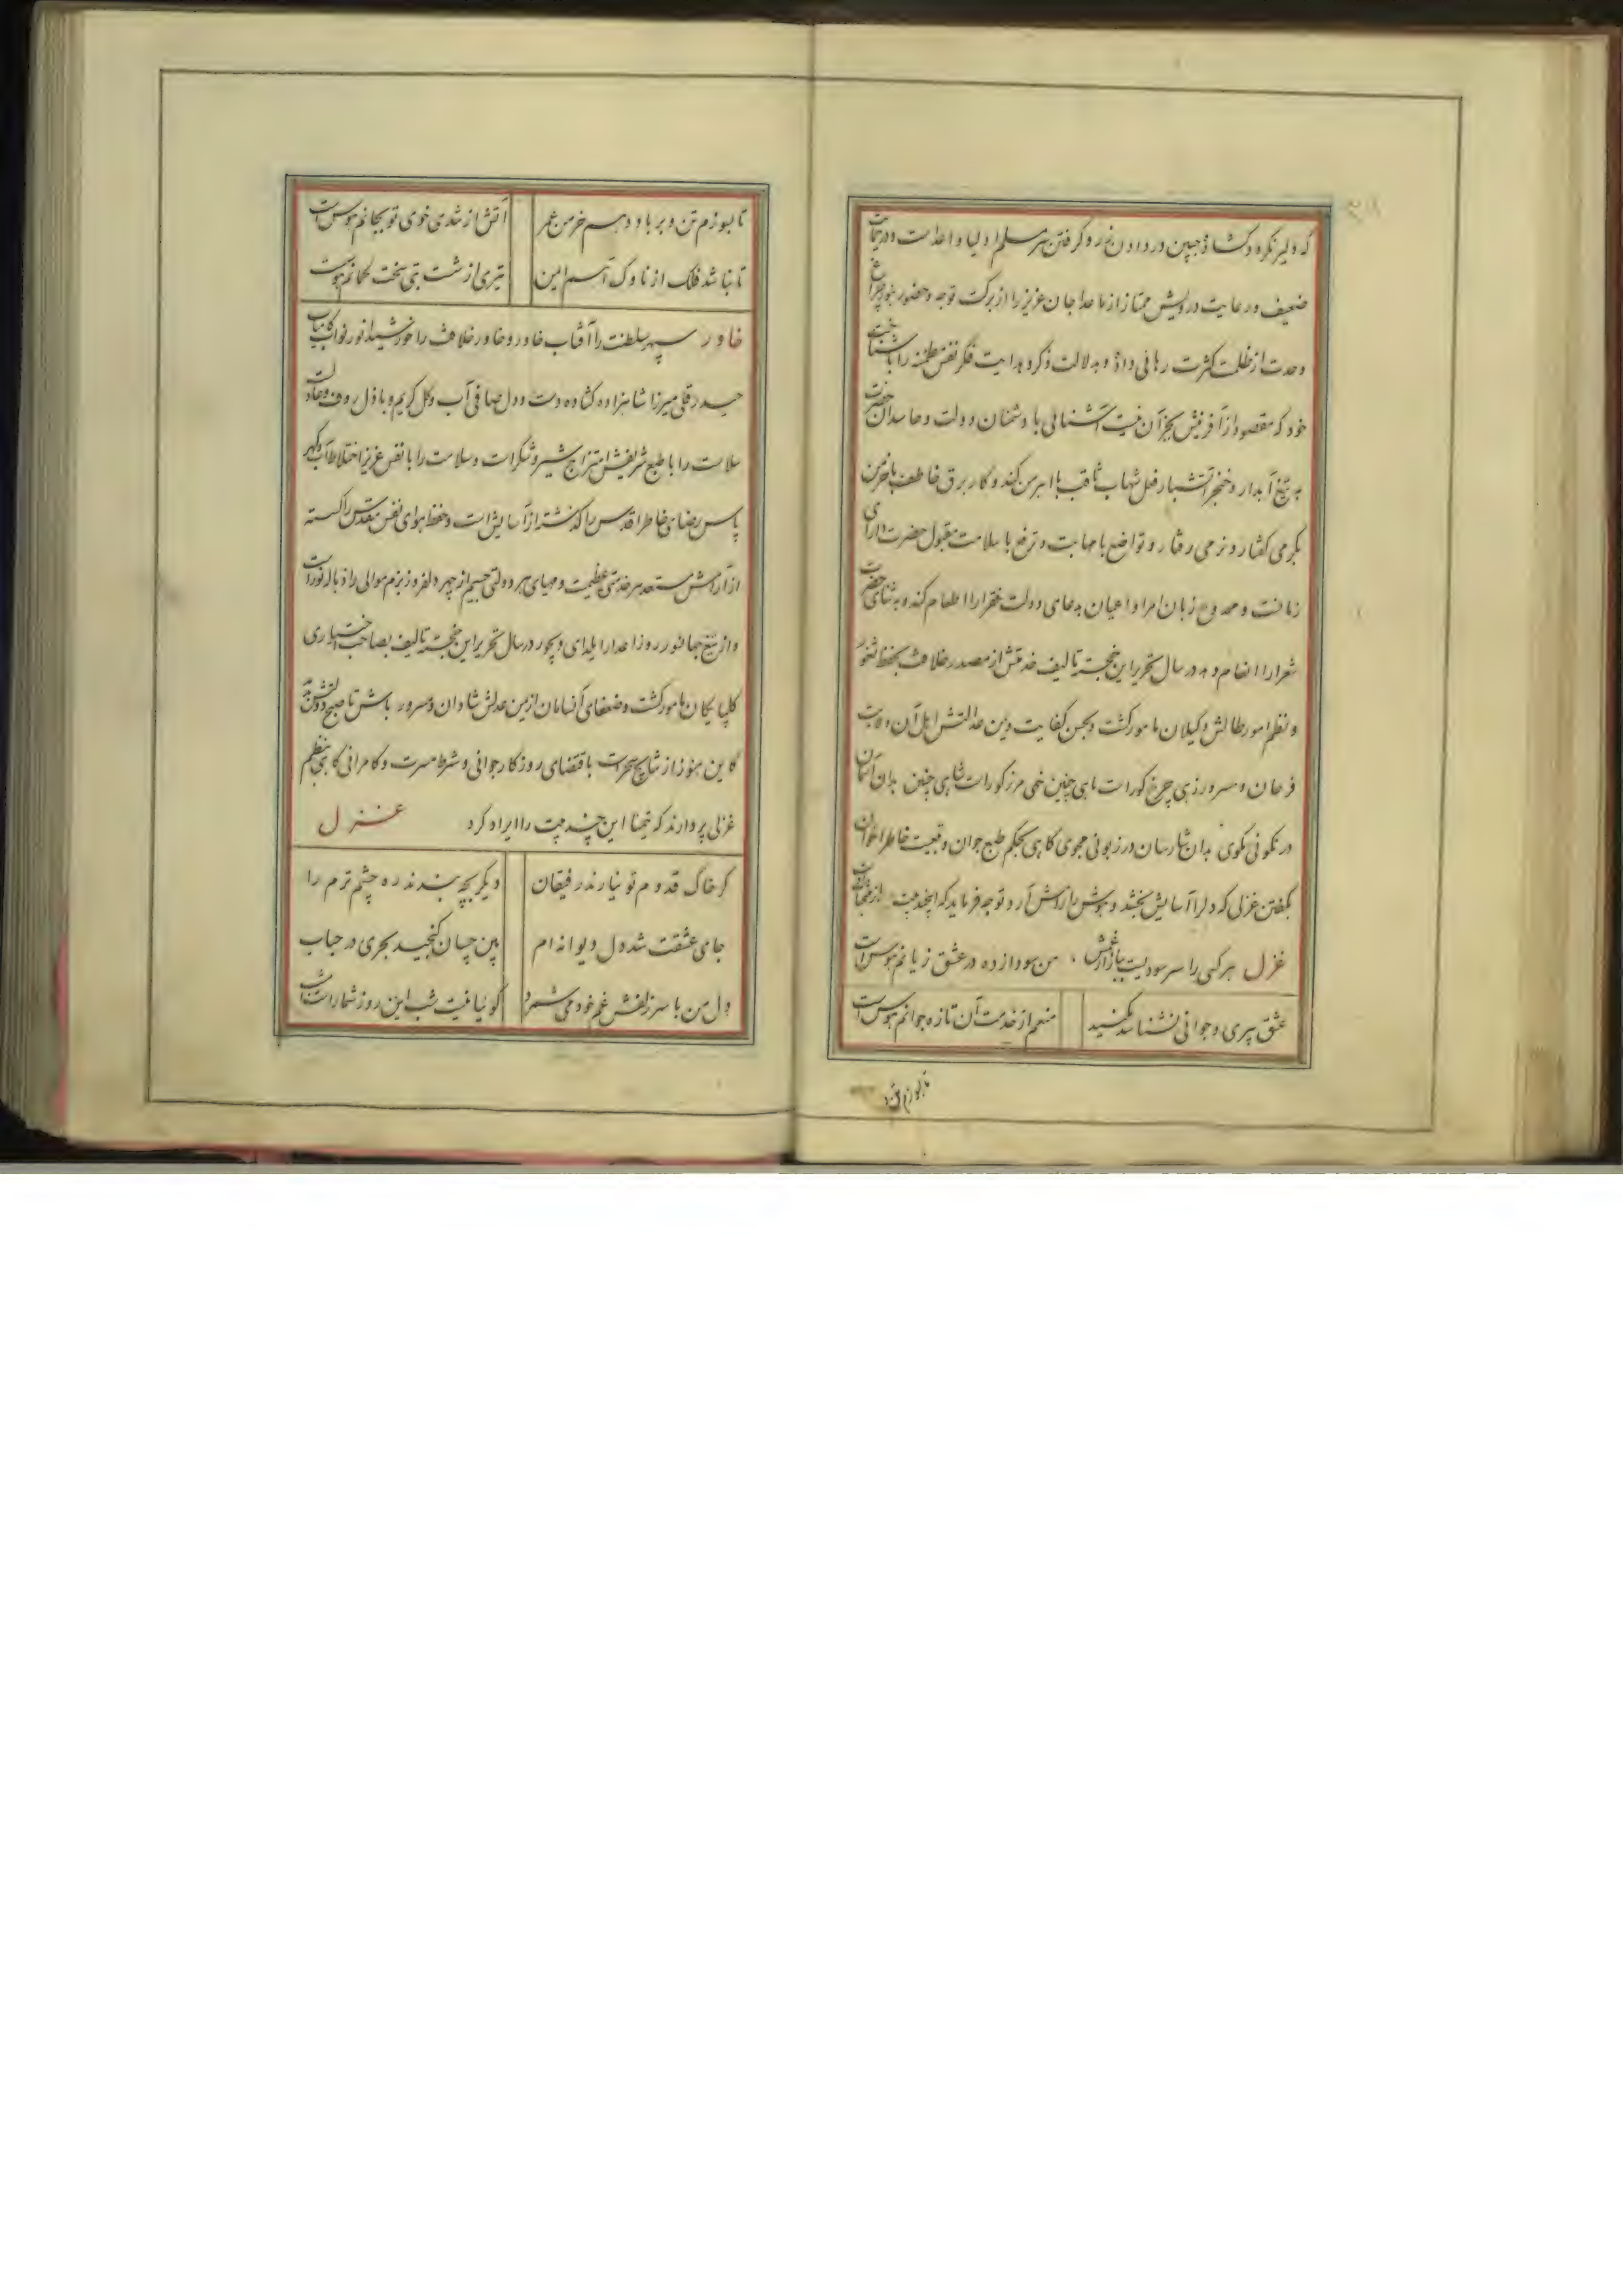 که دلیر نکرده و گشاد جبین در دادن زر و گرفتن سر مسلم اولیا و اعداست و در حمایت
ضعیف و رعایت درویش ممتاز از ماعدا جان عزیز را از برکت توجه و حضور بنور چراغ
وحدت از ظلمت کثرت رهائی داده و بدلالت ذکر و هدایت فکر نفس مطمئنه را با شناخت
خود که مقصود از آفرینش بجز آن نیست آشنائی با دشمنان دولت و حاسدان حضرت
به تیغ آبدار و خنجر آتشبار فعل شهاب ثاقب با اهرمن کند و کار برق خاطف با خرمن
بگرمی گفتار و نرمی رفتار و تواضع با مهابت و ترفع با سلامت مقبول حضرت دارای
زمانست و ممدوح زبان امرا و اعیان بدعای دولت فقرا را اطعام کند و به ثنای حضرت
شعرا را انعام دهد در سال تحریر این خجسته تالیف خدمتش از مصدر خلافت بحفظ ثغور
و نظم امور طالش و گیلان مامور گشت و بحسن کفایت و یمن عدالتش اهل آن ولایت
فرحان و مسرور زهی چرخ کورات ماهی چنین خهی مرز کوراست شاهی چنین بدان آسمان
در نکوئی مگوی بدان شارسان در زبونی مجوی گاهی بحکم طبع جوان و تبعیت خاطر اخوان
بگفتن غزلی که دلرا آسایش بخشد و هوش را رامش آرد توجه فرماید که اینچند بیت از
غزل هر کسی را سر سودیست ببازار غمش من سودازده در عشق زیانم هوس است
عشق پیری و جوانی نشناسد مکنید منعم از خدمت آن تازه جوانم هوس است
تا بسوزم تن و
تا بسوزم تن و بر باد دهم خرمن عمر آتش از تندی خوی تو بجانم هوس است
تا نباشد فلک از ناوک آهم ایمن تیری از شست بتی سخت کمانم هوس است
خاور سپهر سلطنت را آفتاب خاور و خاور خلافت را خورشید انور نواب کامیاب
حیدر قلی میرزا شاهزاده گشاده دست و دل صافی آب و گل کریم و باذل رؤف و عادل
سلاست را با طبع شریفش امتزاج شیر و شکر است و سلامت را با نفس عزیز اختلاط آب و گهر
پاس رضای خاطر اقدس را گذشته از آسایش است و حفظ هوای نفس مقدس را گسسته
از آرامش مستعد هر خدمتی عظیمست و مهیای هر دولتی جسیم از چهر دلفروز بزم موالی را هاله نور است
و از تیغ جهانسوز روز اعدا را یلدای دیجور در سال تحریر این خجسته تالیف بصاحب اختیاری
گلپایگان مامور گشت و ضعفای آنسامان از یمن عدلش شادان و مسرور باش تا صبح دولتش بدمد
کاین هنوز از نتایج سحر است باقتضای روزگار جوانی و شرط مسرت و کامرانی گاهی بنظم
غزلی پردازند که تیمنا این چند بیت را ایراد کرد غزل
گر خاک قدوم تو نیارند رفیقان دیگر بچه بندند ره چشم ترم را
جای عشقت شد دل دیوانه ام بین چسان گنجید بحری در حباب
دل من با سر زلفش غم خود می شمرد گوئیا نیست شب این روز شمار است امشب